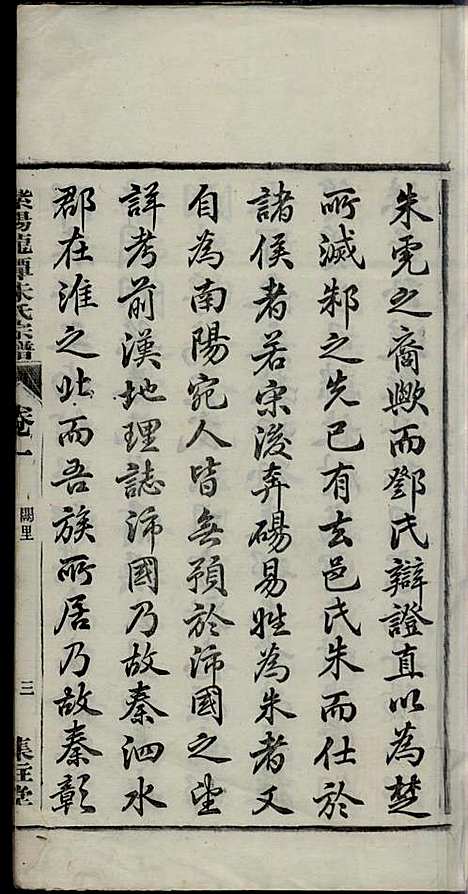 朱虎之裔歟而鄧氏辯證直以為楚
所滅邾之先已有去邑氏朱而仕於
諸侯者若宋後奔碭易姓為朱者又
自為南陽宛人皆無預於沛國之望
詳考前漢地理誌沛國乃故秦泗水
郡在淮之北而吾族所居乃故秦彰
紫陽龍潭朱氏宗譜 卷一 闕里 三 集註堂